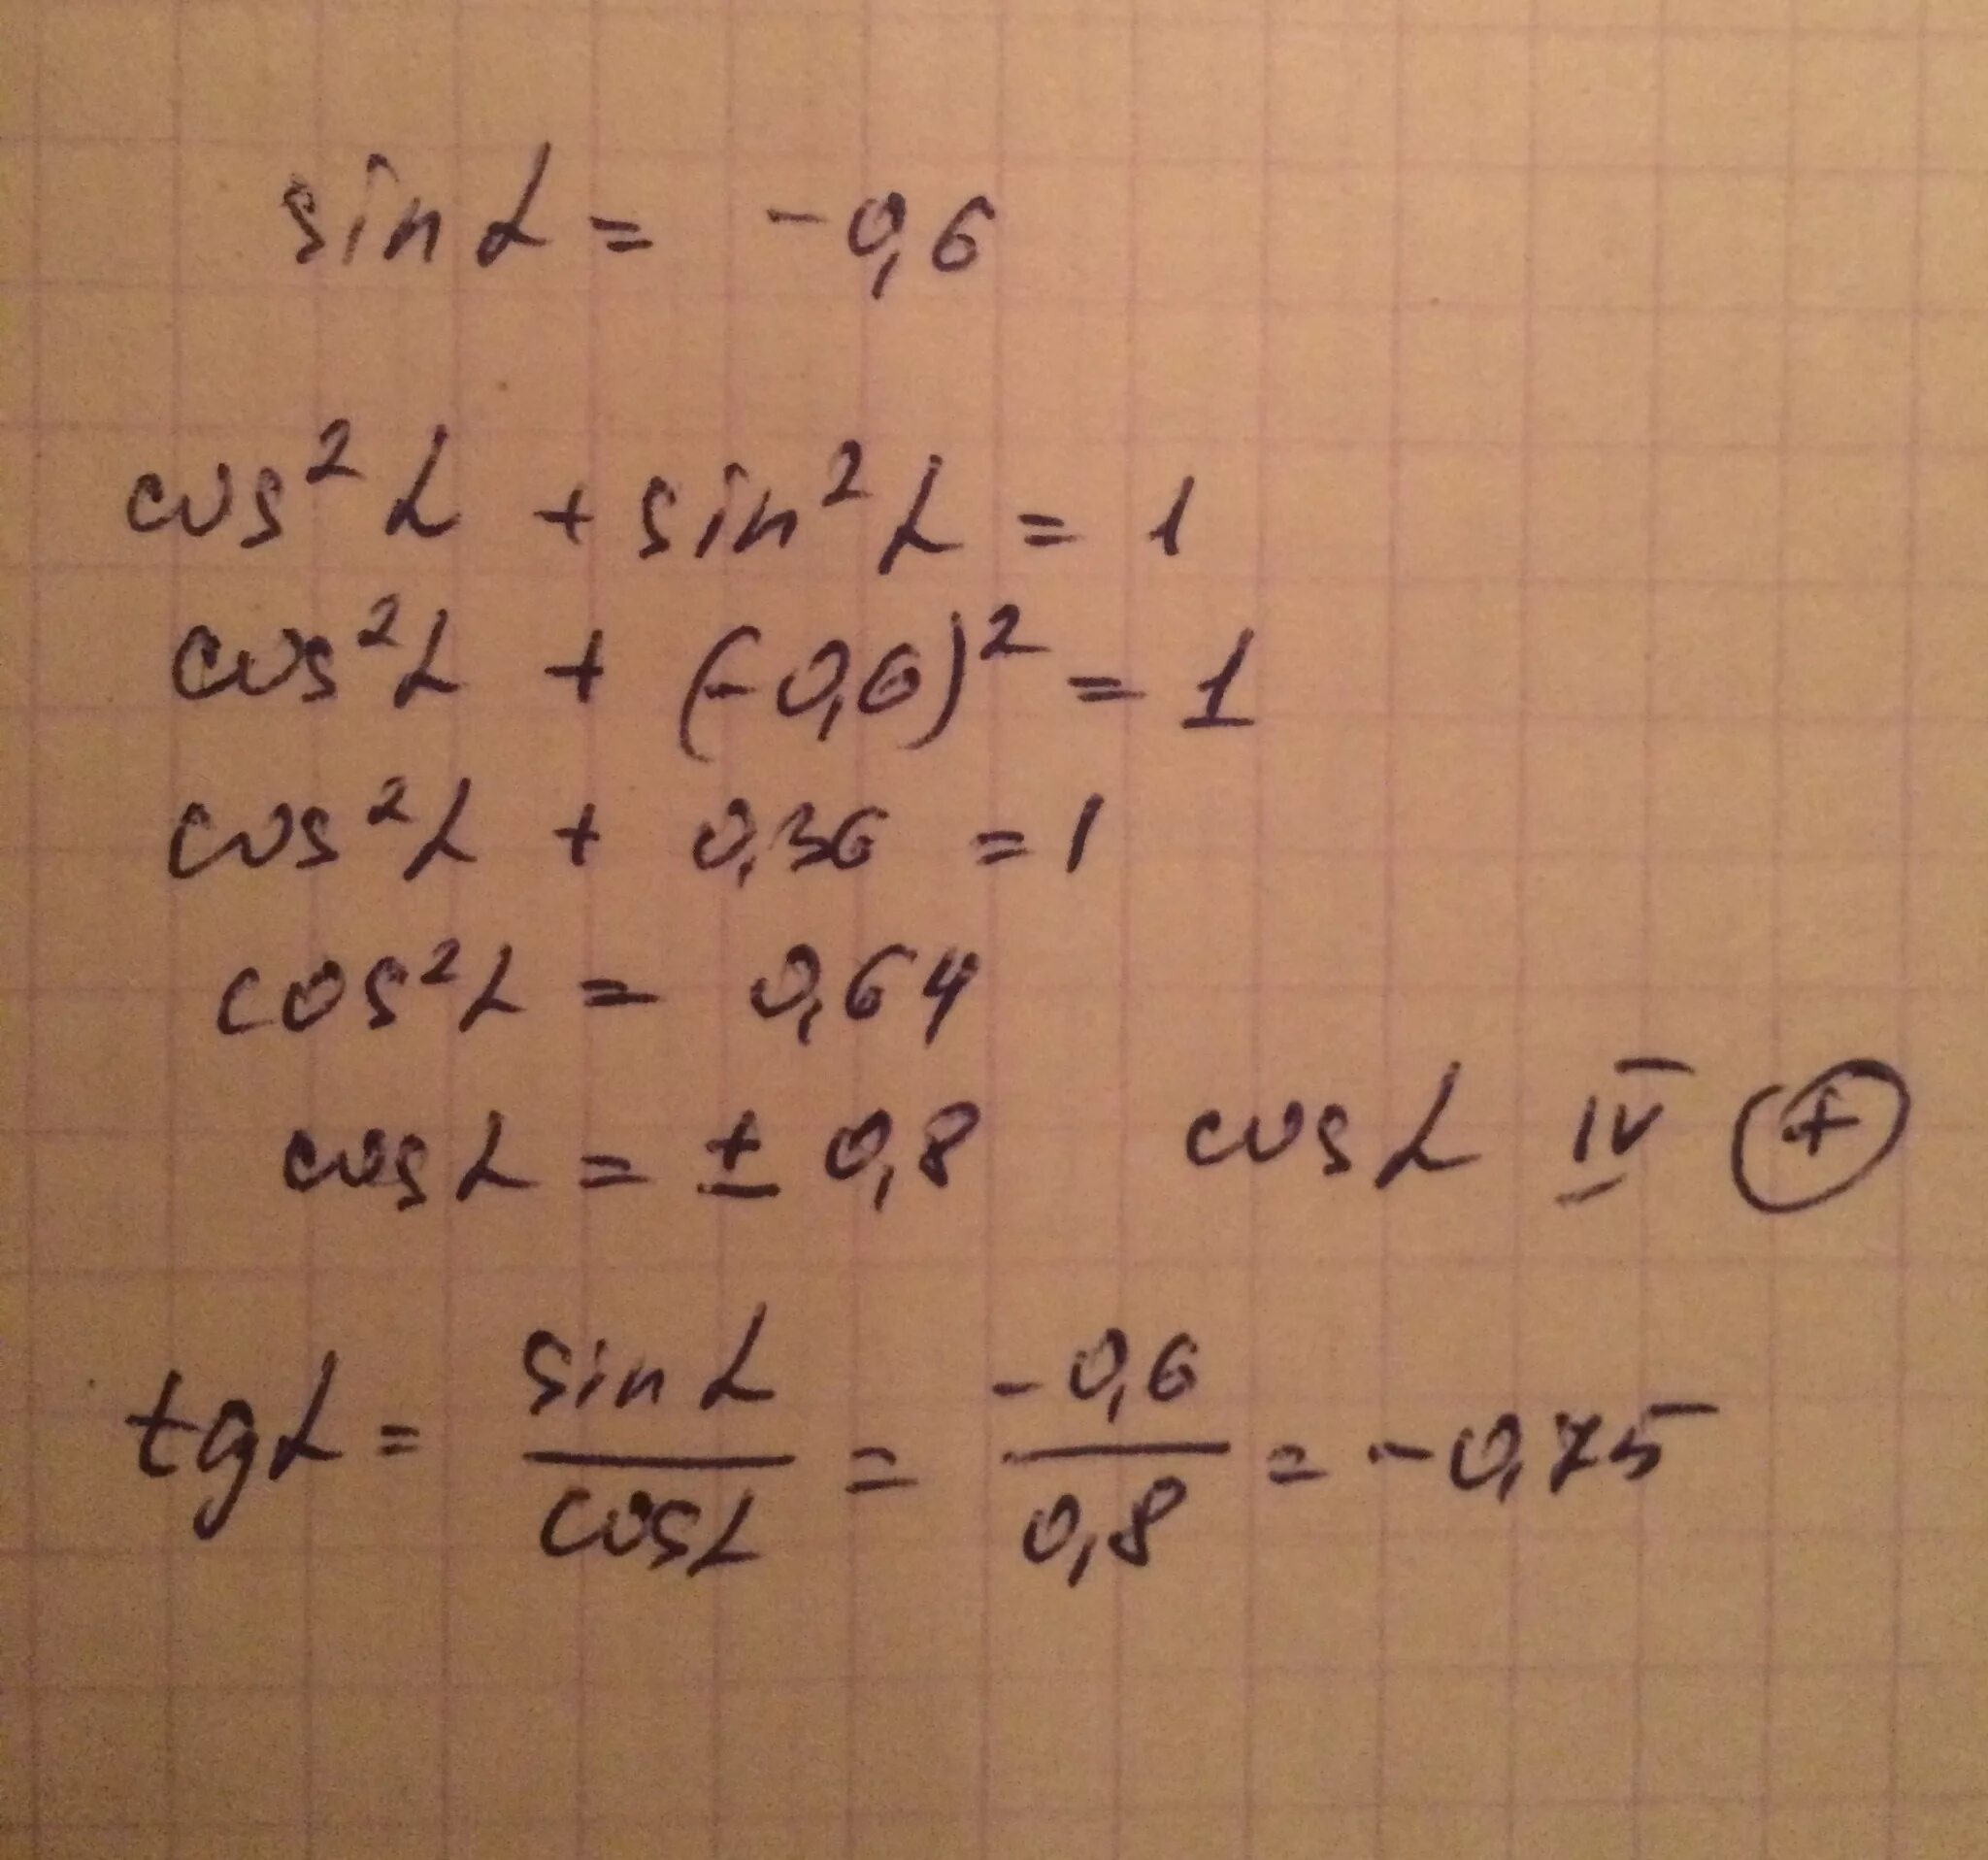 sin α = -0,6
cos² α + sin² α = 1
cos² α + (-0,6)² = 1
cos² α + 0,36 = 1
cos² α = 0,64
cos α = ± 0,8 cos α IV +
tg α = sin α / cos α = -0,6 / 0,8 = -0,75